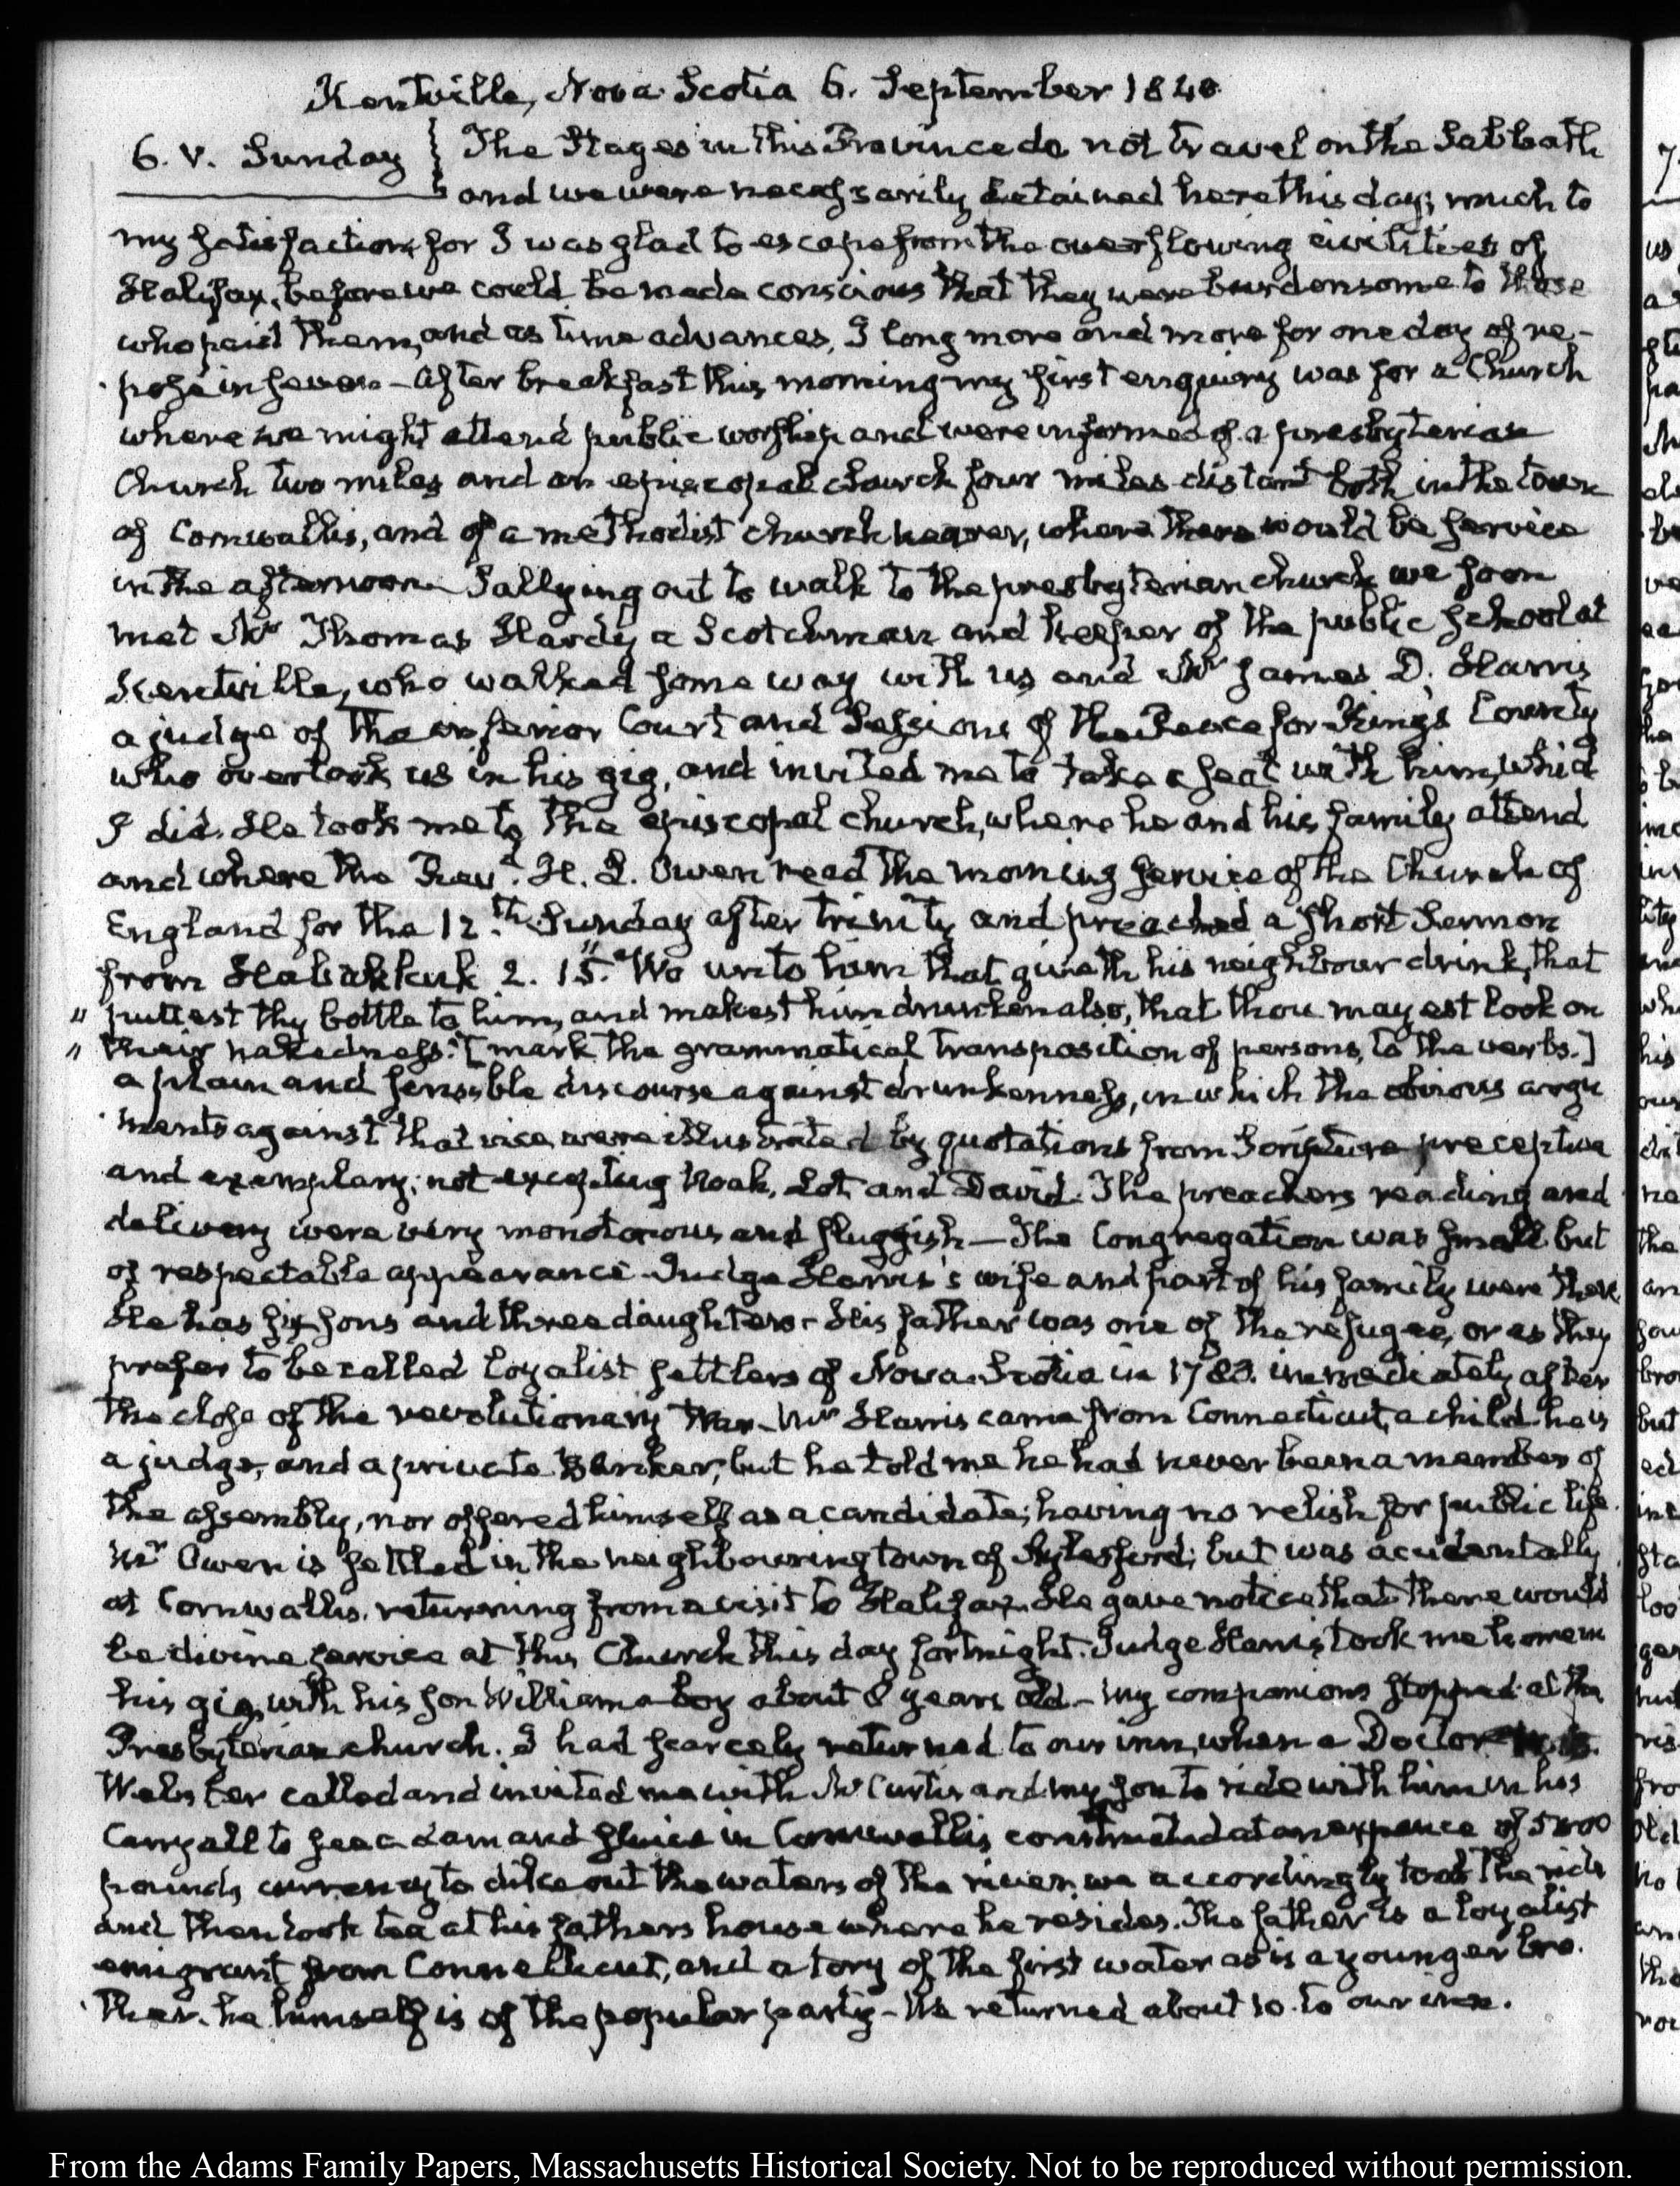 Kentville, Nova Scotia 6. September 1840
6. V. Sunday } The Stages in this Province do not travel on the Sabbath
and we were necessarily detained here this day; much to
my satisfaction, for I was glad to escape from the overflowing civilities of
Halifax, before we could be made conscious that they were burdensome to those
who paid them, and as time advances, I long more and more for one day of re-
pose in seven — After breakfast this morning my first enquiry was for a Church
where we might attend public worship and were informed of a presbyterian
Church two miles and an episcopal church four miles distant both in the town
of Cornwallis, and of a methodist church nearer, where there would be service
in the afternoon. Sallying out to walk to the presbyterian church we soon
met Mr Thomas Hardy a Scotchman and keeper of the public school at
Kentville, who walked some way with us and Mr James D. Harris
a judge of the inferior Court and Sessions of the Peace for King's County
who overtook us in his gig, and invited me to take a seat with him, which
I did. He took me to the episcopal church, where he and his family attend
and where the Revd. H. L. Owen read the morning service of the Church of
England for the 12.th Sunday after trinity and preached a short Sermon
from Habakkuk 2. 15. "Wo unto him that giveth his neighbour drink, that
" puttest thy bottle to him, and makest him drunken also, that thou mayest look on
" their nakedness." [mark the grammatical transposition of persons, to the verbs.]
a plain and sensible discourse against drunkenness, in which the obvious argu
ments against that vice were illustrated by quotations from Scripture preceptive
and exemplary; not excepting Noah, Lot and David. The preachers reading and
delivery were very monotonous and sluggish — The Congregation was small but
of respectable appearance. Judge Harris's wife and part of his family were there
He has six sons and three daughters — His father was one of the refugee, or as they
prefer to be called loyalist settlers of Nova-Scotia in 1783. immediately after
the close of the revolutionary War — Mr Harris came from Connecticut, a child. he is
a judge, and a private Banker, but he told me he had never been a member of
the assembly, nor offered himself as a candidate; having no relish for public life.
Mr Owen is settled in the neighbouring town of Aylesford; but was accidentally
at Cornwallis. returning from a visit to Halifax. He gave notice that there would
be divine service at this Church this day fortnight. Judge Harris took me home in
his gig, with his son William a boy about 8 years old — My companions stopped at the
Presbyterian church. I had scarcely returned to our inn, when a Doctor
Webster called and invited me with Mr Curtis and my son to ride with him in his
Carryall to see a dam and sluice in Cornwallis constructed at an expence of 5000
pounds currency to dike out the waters of the river. we accordingly took the ride
and then took tea at his fathers house where he resides. The father is a loyalist
emigrant from Connecticut, and a tory of the first water as is a younger bro.
ther. he himself is of the popular party — We returned about 10. to our inn.
From the Adams Family Papers, Massachusetts Historical Society. Not to be reproduced without permission.